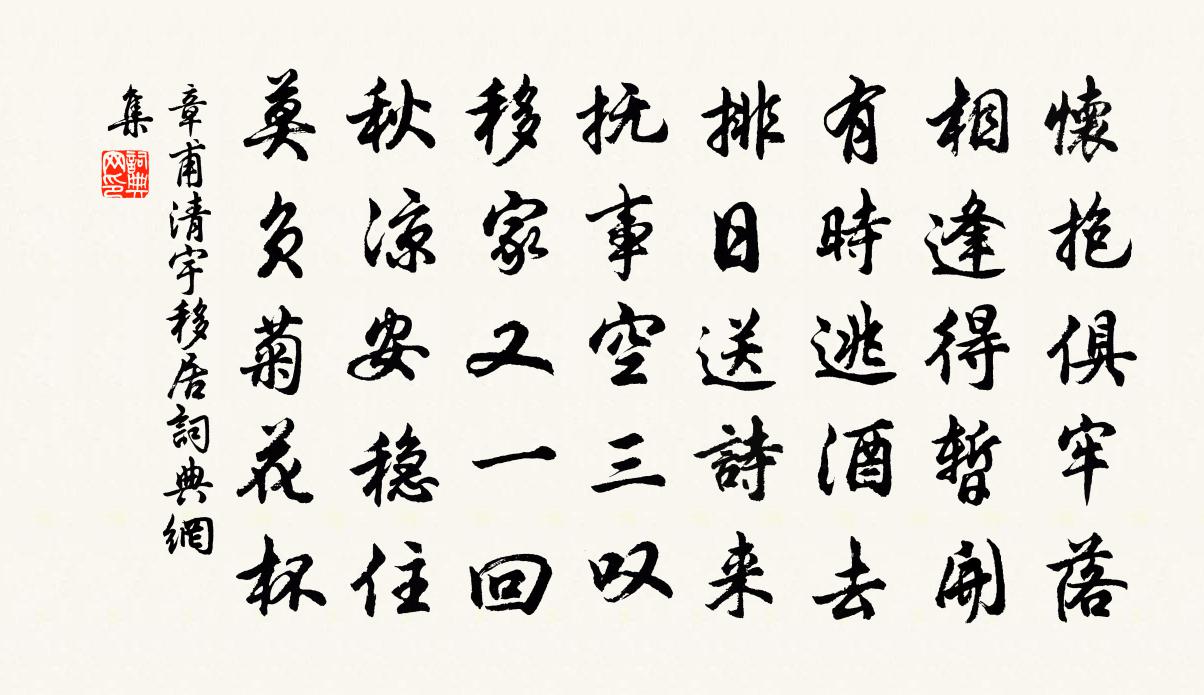 懷抱俱牢落
相逢得暫開
有時逃酒去
排日送詩来
抚事空三叹
移家又一回
秋凉安稳住
莫负菊花杯
章甫清宇移居詞典網
集
詞典
网印